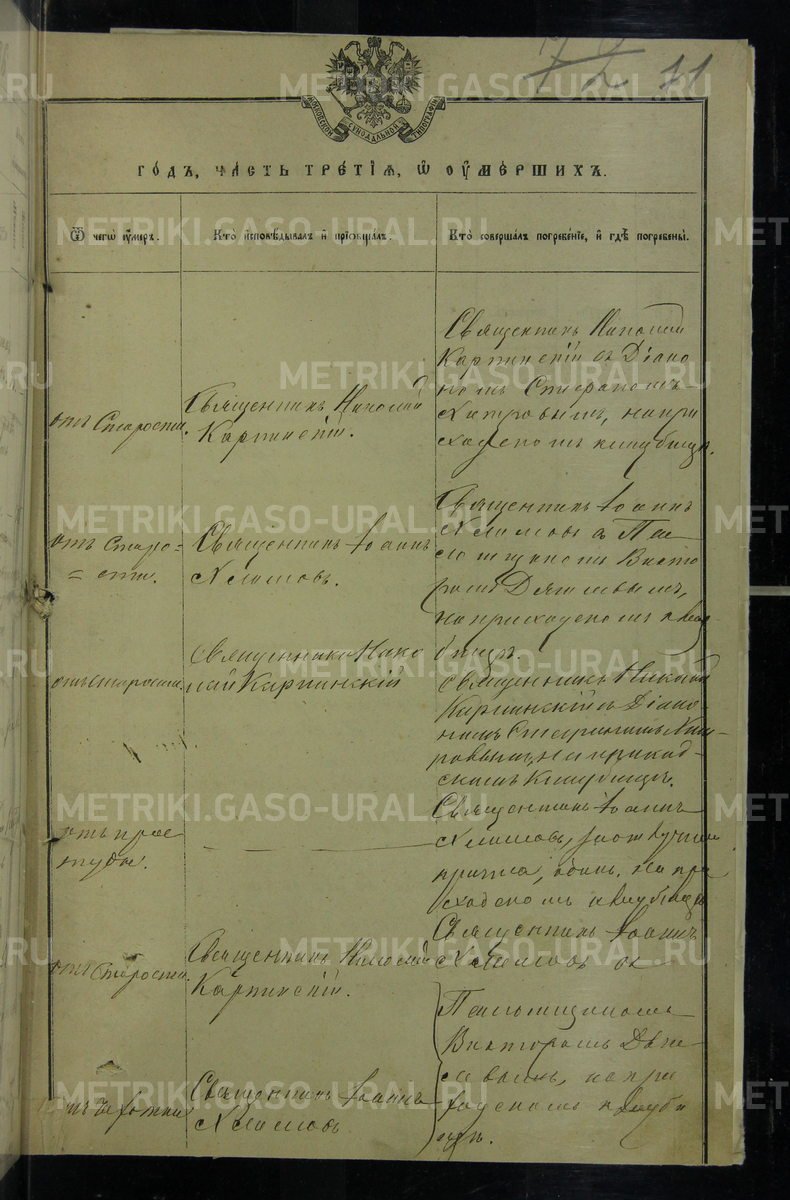 72 11
МОСКОВСКОЙ СѴНОДАЛЬНОЙ ТИПОГРАФІИ
ГОДЪ, ЧАСТЬ ТРЕТІЯ, Ѡ ОУМЕРШИХЪ.
Ѿ чегѡ оумеръ.
Кто исповѣдывалъ и пріобщалъ.
Кто совершалъ погребеніе, и гдѣ погребены.
отъ Старости.
Священникъ Николай
Карпинскій.
Священникъ Николай
Карпинскій съ Діако
номъ Стефаномъ
Хитровымъ, на при
ходскомъ кладбищѣ.
отъ Старо=
=сти.
Священникъ Іоаннъ
Хламовъ.
Священникъ Іоаннъ
Хламовъ съ Пса
ломщикомъ Викто
ромъ
на приходскомъ клад
бищѣ.
отъ Старости.
Священникъ Нико
лай Карпинскій
Священникъ Николай
Карпинскій съ Діако
номъ Стефаномъ Хит
ровымъ, на приход
скомъ кладбищѣ.
отъ прос
туды.
Священникъ Іоаннъ
Хламовъ,
причта, одинъ. На при
ходскомъ кладбищѣ
отъ Старости.
Священникъ Николай
Карпинскій.
Священникъ Іоаннъ
Хламовъ съ
Псаломщикомъ
Викторомъ
на при
ходскомъ кладби
щѣ.
отъ Чахотки
Священникъ Іоаннъ
Хламовъ
METRIKI.GASO-URAL.RU